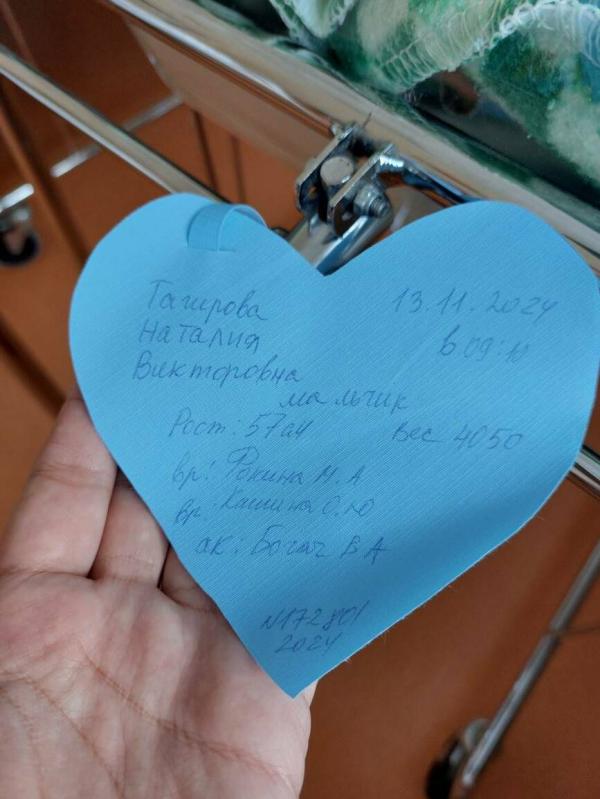 Тагирова
Наталия
Викторовна
13.11.2024
в 09:10
мальчик
Рост: 57см Вес 4050
вр: Фокина М.А
вр. Кашина О.Ю
ак: Богач В А
N172801
2024